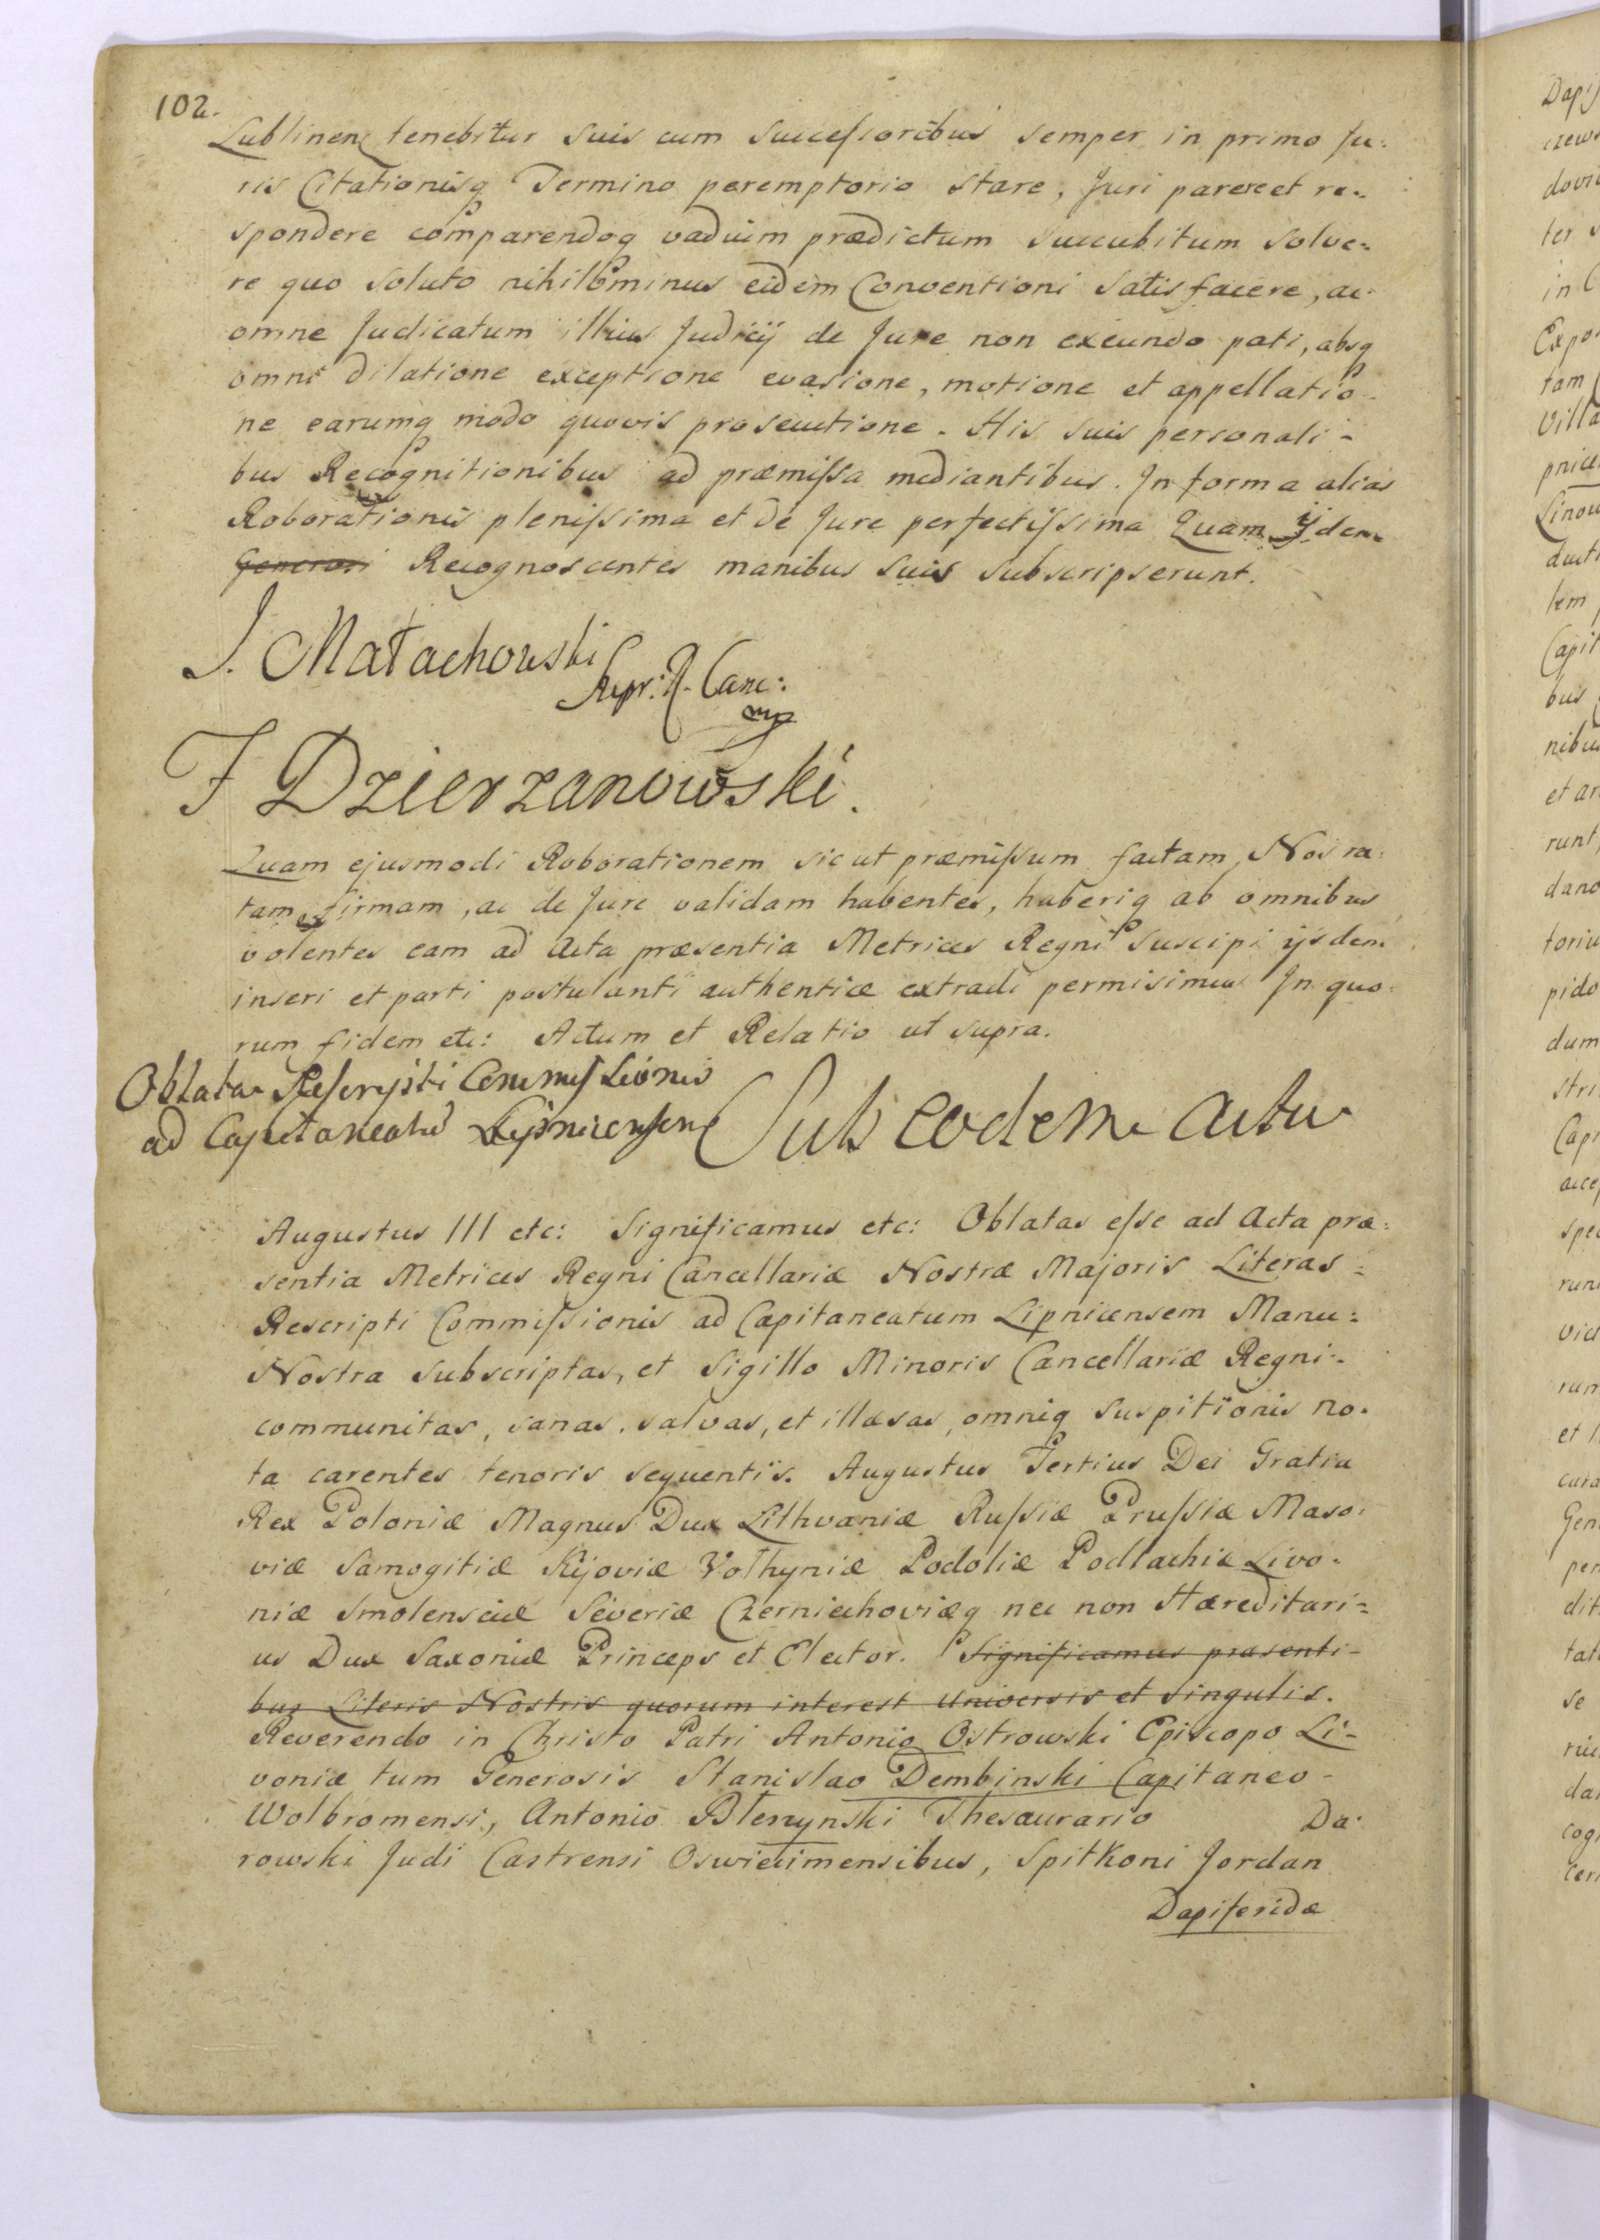 102.
Lublinen tenebitur suis cum successoribus semper in primo Ju:
ris Citationisq Termino peremptorio stare, Juri parere et re:
spondere comparendoq vadium prædictum succubitum solve:
re quo soluto nihilominus eidem Conventioni satisfacere, ac
omne Judicatum illius Judicij de Jure non exeundo pati, absq
omni dilatione exceptione evasione, motione et appellatio-
ne earumq modo quovis prosecutione. His suis personali-
bus Recognitionibus ad præmissa mediantibus. In forma alias
Roborationis plenissima et de Jure perfectissima Quam Ijdem
Generosi Recognoscentes manibus suis subscripserunt.
J. Małachowski
Supr: R. Canc:
mp
F Dzierzanowski.
Quam ejusmodi Roborationem sicut præmissum factam, Nos ra:
tam et firmam, ac de Jure validam habentes, haberiq ab omnibus
volentes eam ad Acta præsentia Metrices Regni suscipi ijsdem
inseri et parti postulanti authenticæ extradi permisimus In quo:
rum fidem etc: Actum et Relatio ut supra.
Oblata Rescripti Commissionis
ad Capitaneatu Lipnicensem
Sub eodem actu
Augustus III etc: Significamus etc: Oblatas esse ad Acta præ:
sentia Metrices Regni Cancellariæ Nostræ Majoris Literas-
Rescripti Commissionis ad Capitaneatum Lipnicensem Manu:
Nostra subscriptas, et Sigillo Minoris Cancellariæ Regni-
communitas, sanas, salvas, et illæsas, omniq suspitionis no-
ta carentes tenoris sequentis. Augustus Tertius Dei Gratia
Rex Poloniæ Magnus Dux Lithvaniæ Russiæ Prussiæ Maso:
viæ Samogitiæ Kijoviæ Volhyniæ Podoliæ Podlachiæ Livo-
niæ Smolensciæ Severiæ Czerniechoviæq nec non Hæreditari-
us Dux Saxoniæ Princeps et Elector. Significamus præsenti-
bus Literis Nostris quorum interest Universis et singulis.
Reverendo in Christo Patri Antonio Ostrowski Episcopo Li-
voniæ tum Generosis Stanislao Dembinski Capitaneo-
Wolbromensi, Antonio Błeszynski Thesaurario Da:
rowski Judi Castrensi Oswiecimensibus, Spitkoni Jordan
Dapiferidæ